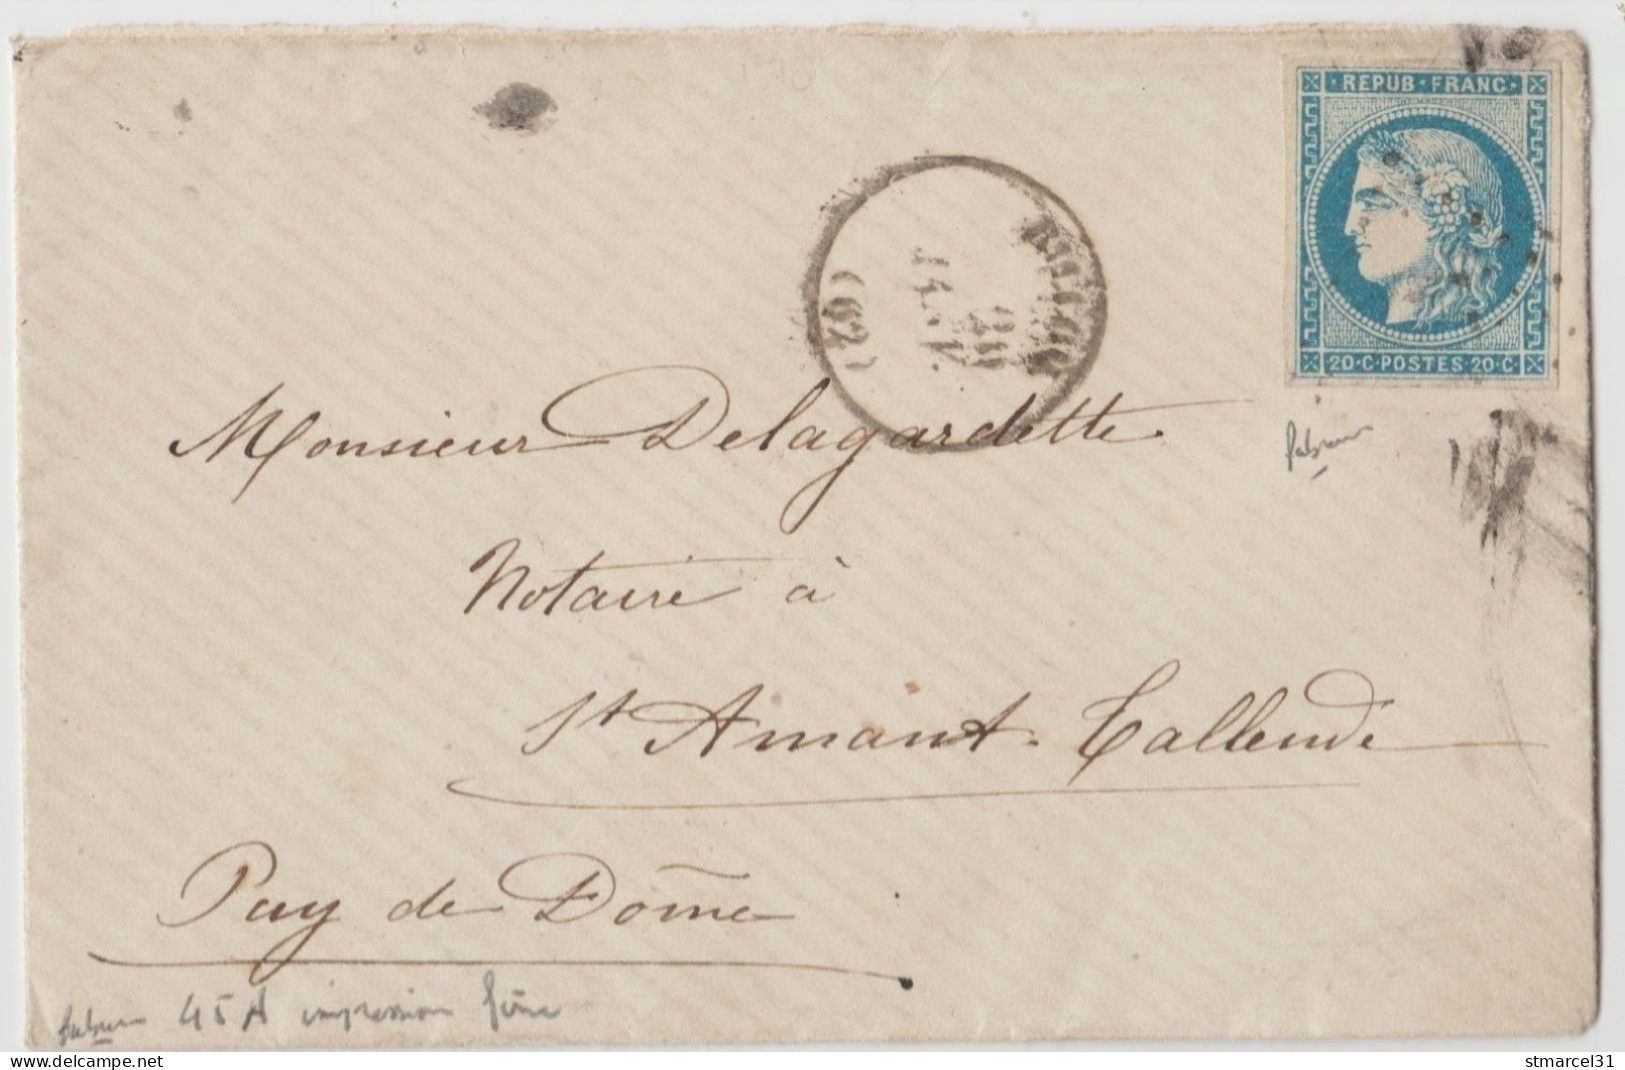 REPUB · FRANC ·
20 · C · POSTES · 20 · C ·
(62)
Monsieur Delagardette
Notaire à
St Amant-Tallende
Puy de Dôme
45 A impression fine
delcampe.net
stmarcel31